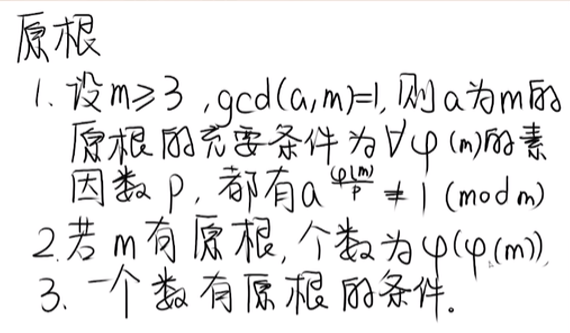 原根
1. 设m≥3,gcd(a,m)=1,则a为m的
原根的充要条件为∀φ(m)的素
因数p,都有a^{\frac{φ(m)}{p}}≢1(mod m)
2.若m有原根,个数为φ(φ(m)),
3、一个数有原根的条件。